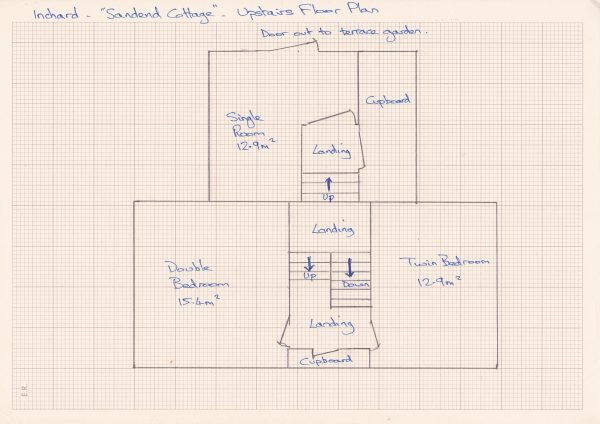 Inchard - "Sandend Cottage" - Upstairs Floor Plan
Door out to terrace garden.
Cupboard
Single
Room
12.9m²
Landing
Up
Landing
Double
Bedroom
15.4m²
Up
Down
Twin Bedroom
12.9m²
Landing
Cupboard
E.R.